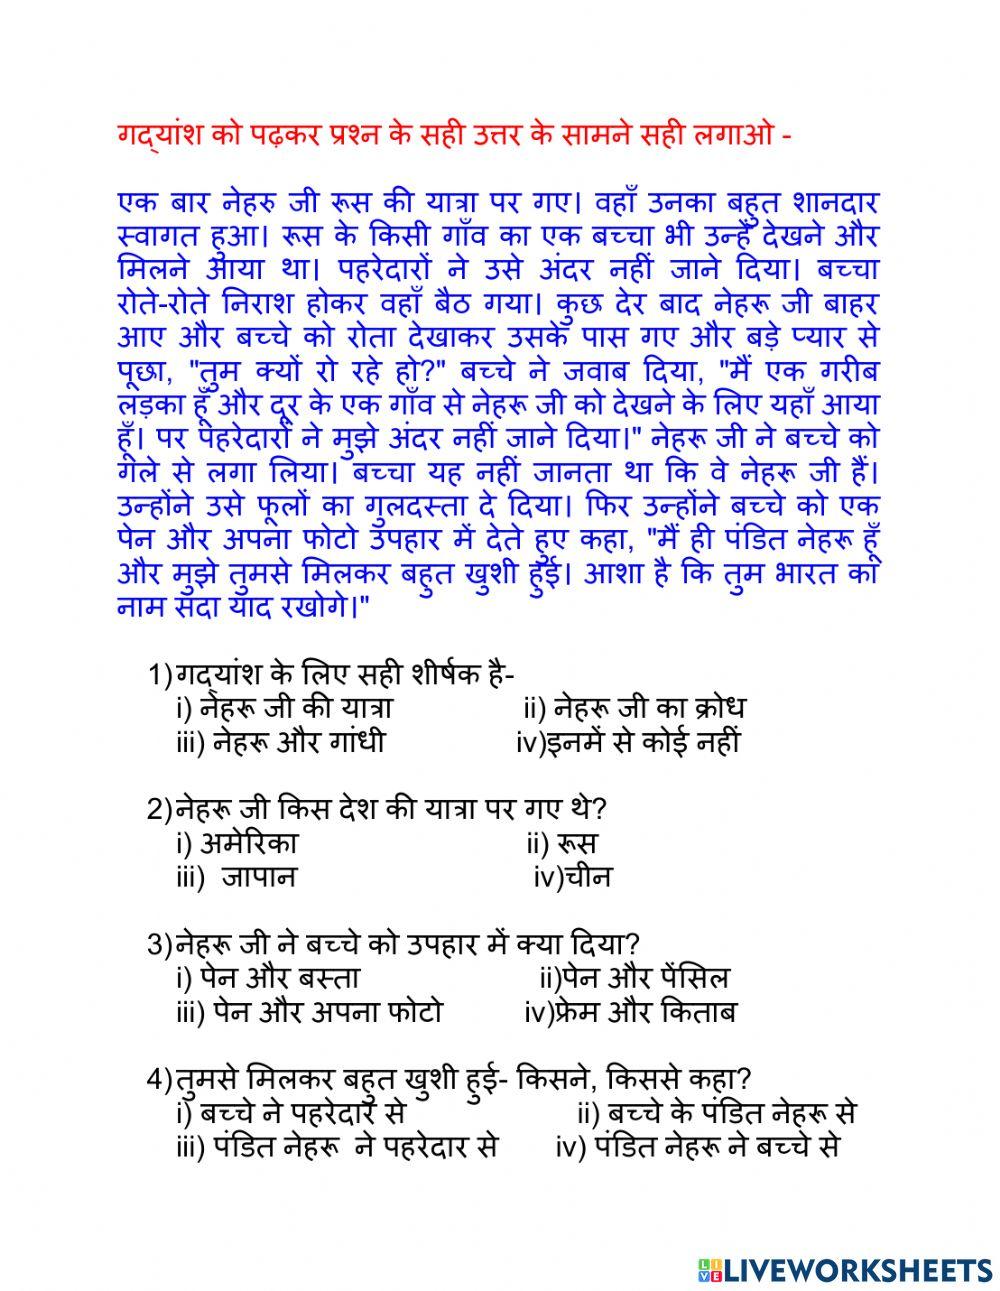 गद्यांश को पढ़कर प्रश्न के सही उत्तर के सामने सही लगाओ -
एक बार नेहरु जी रूस की यात्रा पर गए। वहाँ उनका बहुत शानदार
स्वागत हुआ। रूस के किसी गाँव का एक बच्चा भी उन्हें देखने और
मिलने आया था। पहरेदारों ने उसे अंदर नहीं जाने दिया। बच्चा
रोते-रोते निराश होकर वहाँ बैठ गया। कुछ देर बाद नेहरू जी बाहर
आए और बच्चे को रोता देखाकर उसके पास गए और बड़े प्यार से
पूछा, "तुम क्यों रो रहे हो?" बच्चे ने जवाब दिया, "मैं एक गरीब
लड़का हूँ और दूर के एक गाँव से नेहरू जी को देखने के लिए यहाँ आया
हूँ। पर पहरेदारों ने मुझे अंदर नहीं जाने दिया।" नेहरू जी ने बच्चे को
गले से लगा लिया। बच्चा यह नहीं जानता था कि वे नेहरू जी हैं।
उन्होंने उसे फूलों का गुलदस्ता दे दिया। फिर उन्होंने बच्चे को एक
पेन और अपना फोटो उपहार में देते हुए कहा, "मैं ही पंडित नेहरू हूँ
और मुझे तुमसे मिलकर बहुत खुशी हुई। आशा है कि तुम भारत का
नाम सदा याद रखोगे।"
1)गद्यांश के लिए सही शीर्षक है-
i) नेहरू जी की यात्रा ii) नेहरू जी का क्रोध
iii) नेहरू और गांधी iv)इनमें से कोई नहीं
2)नेहरू जी किस देश की यात्रा पर गए थे?
i) अमेरिका ii) रूस
iii) जापान iv)चीन
3)नेहरू जी ने बच्चे को उपहार में क्या दिया?
i) पेन और बस्ता ii)पेन और पेंसिल
iii) पेन और अपना फोटो iv)फ्रेम और किताब
4)तुमसे मिलकर बहुत खुशी हुई- किसने, किससे कहा?
i) बच्चे ने पहरेदार से ii) बच्चे के पंडित नेहरू से
iii) पंडित नेहरू ने पहरेदार से iv) पंडित नेहरू ने बच्चे से
LIVE LIVEWORKSHEETS